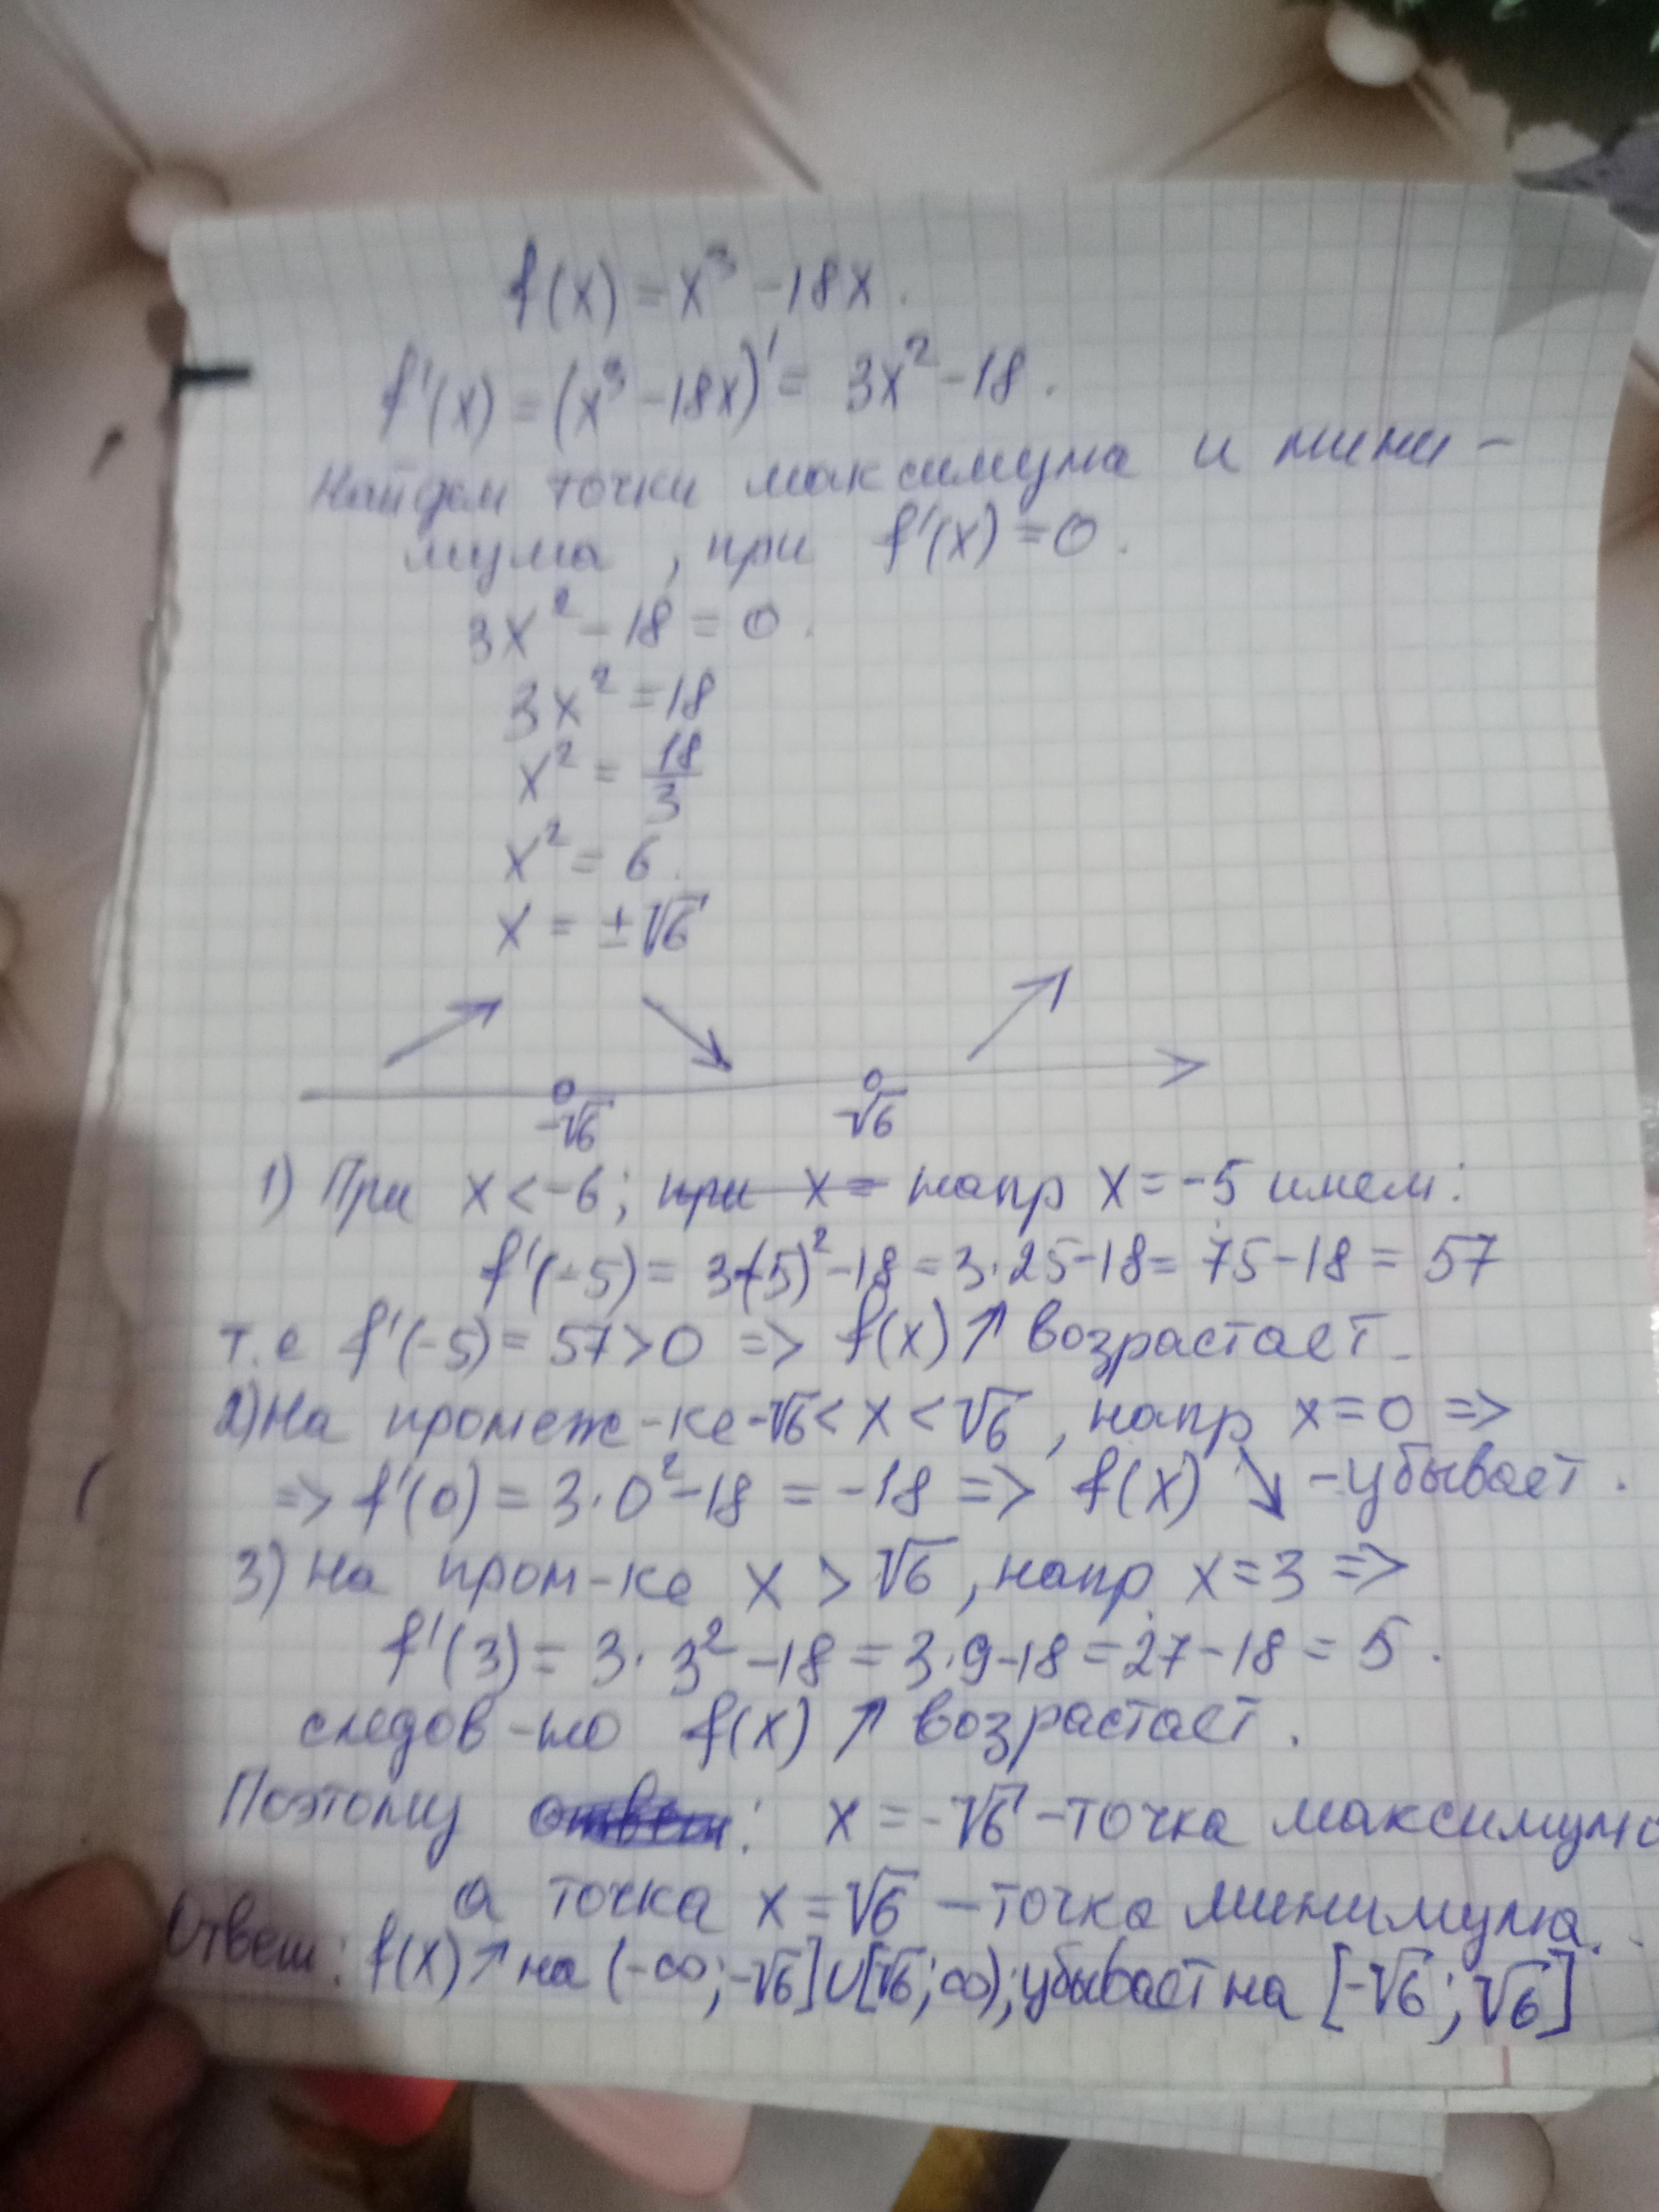 f(x) = x³ - 18x.
f'(x) = (x³ - 18x)' = 3x² - 18.
Найдем точки максимума и мини-
мума, при f'(x) = 0.
3x² - 18 = 0.
3x² = 18
x² = 18/3
x² = 6.
x = ±√6
-√6 √6
1) При x < -6; при x = напр x = -5 имем:
f'(-5) = 3(-5)² - 18 = 3·25 - 18 = 75 - 18 = 57
т.е f'(-5) = 57 > 0 => f(x) ↑ возрастает.
2) На промеж-ке -√6 < x < √6, напр x = 0 =>
=> f'(0) = 3·0² - 18 = -18 => f(x) ↘ - убывает.
3) на пром-ке x > √6, напр x = 3 =>
f'(3) = 3·3² - 18 = 3·9 - 18 = 27 - 18 = 5.
следов-но f(x) ↑ возрастает.
Поэтому ответ: x = -√6 - точка максимума
а точка x = √6 - точка минимума.
Ответ: f(x) ↑ на (-∞; -√6] ∪ [√6; ∞); убывает на [-√6; √6]